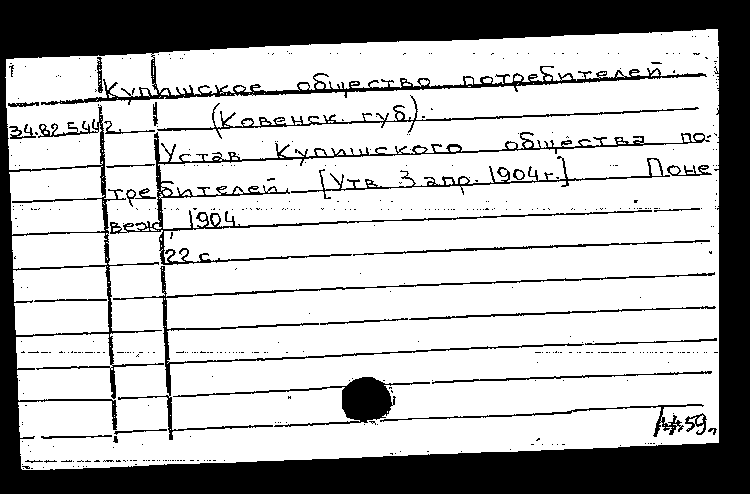 Купишское общество потребителей.
(Ковенск. губ.).
34.82.5.442.
Устав Купишского общества по-
требителей. [Утв. 3 апр. 1904 г.] Поне-
веж, 1904.
22 с.